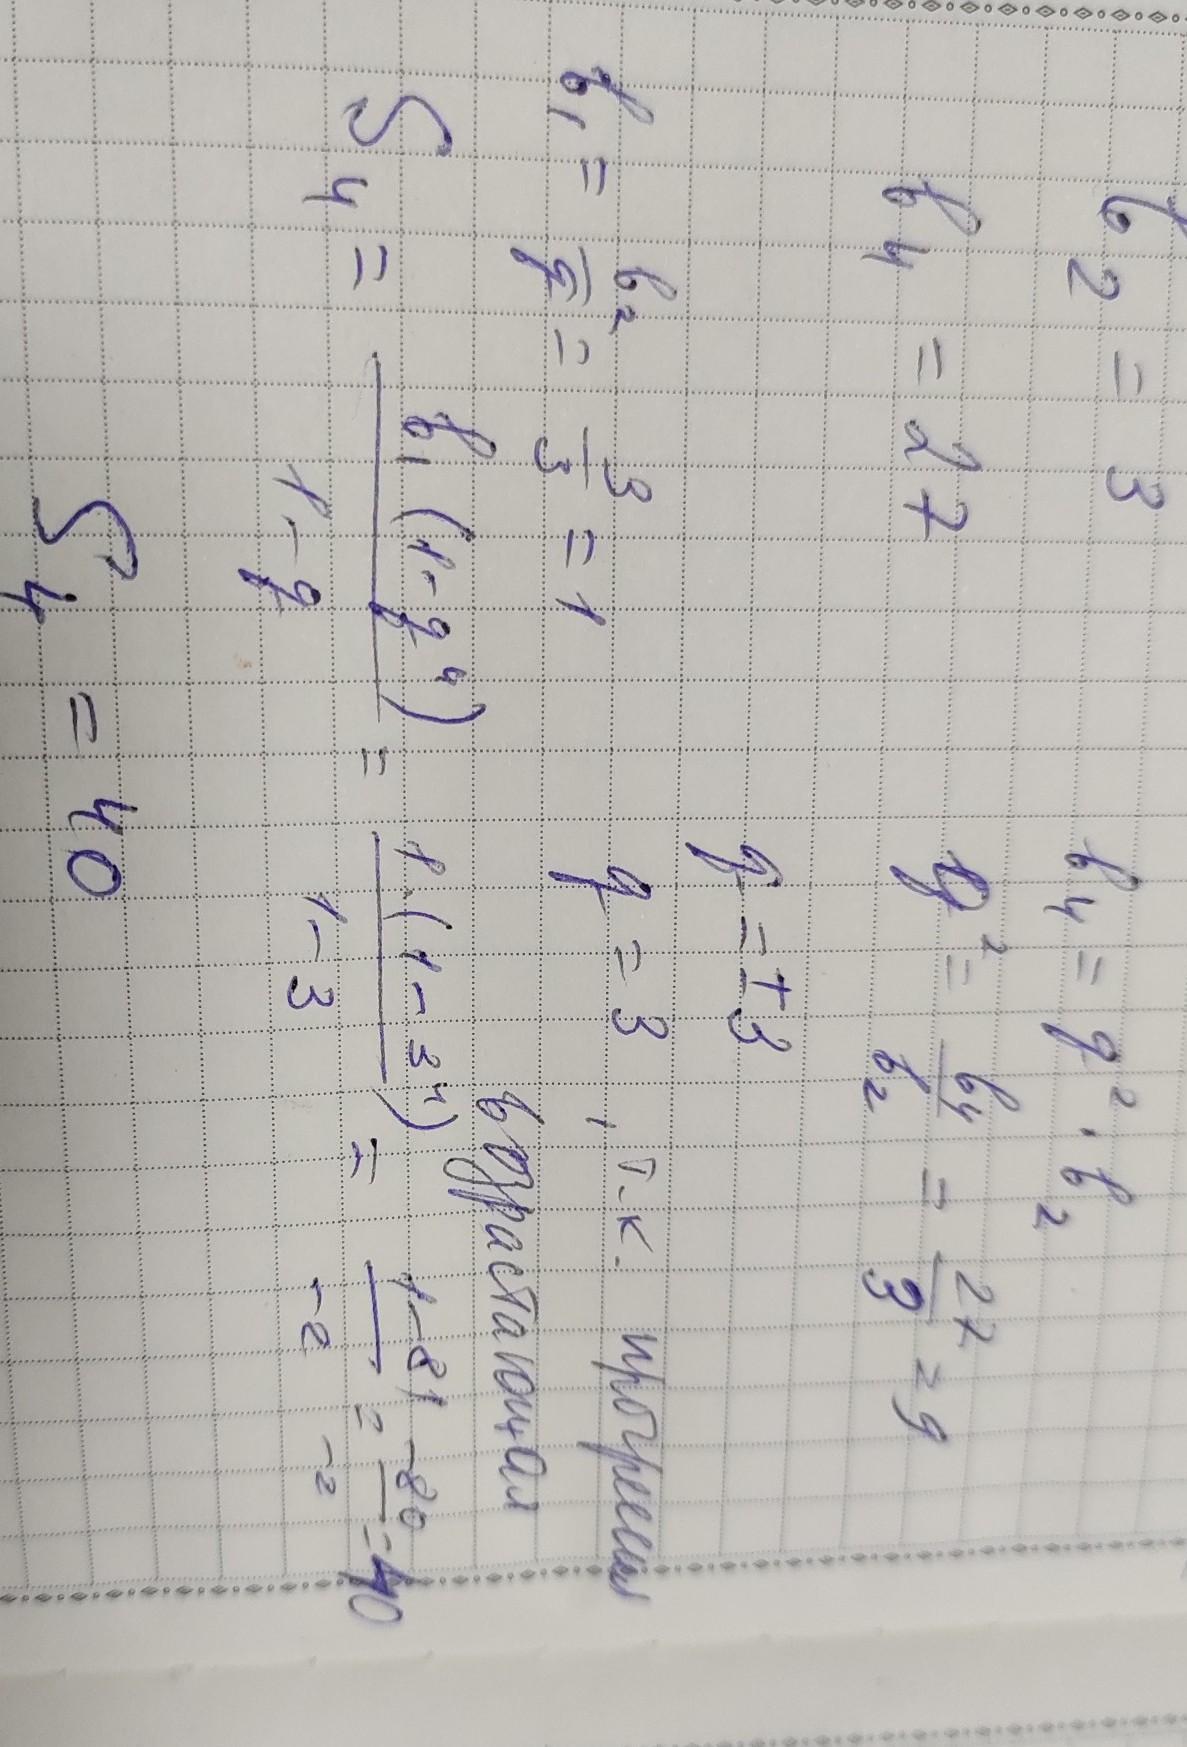 b2 = 3
b4 = q² · b2
b4 = 27
q² = b4/b2 = 27/3 = 9
q = ±3
q = 3, т.к. прогрессия
возрастающая
b1 = b2/q = 3/3 = 1
S4 = b1(1-q⁴)/1-q = 1·(1-3⁴)/1-3 = 1-81/-2 = -80/-2 = 40
S4 = 40